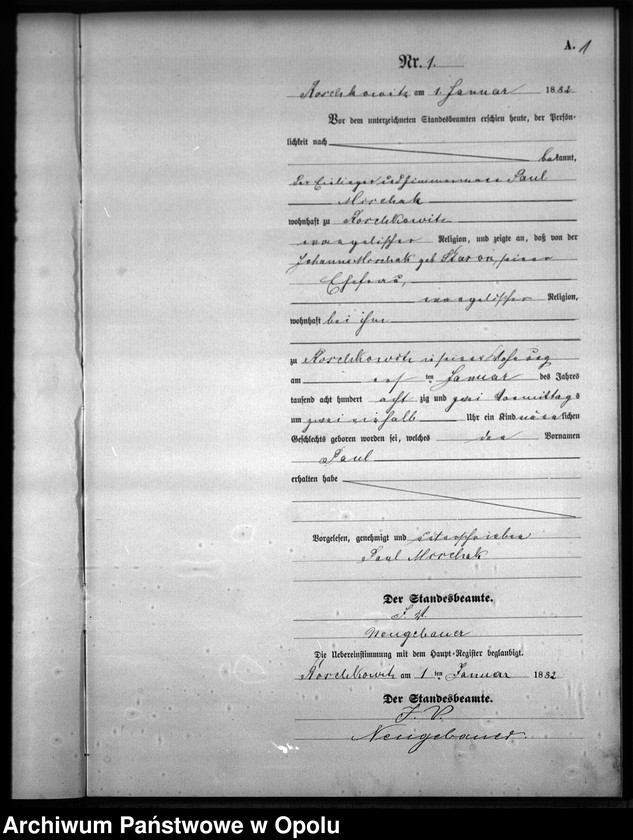 A. 1
Nr. 1.
Roschkowitz am 1. Januar 1882
Vor dem unterzeichneten Standesbeamten erschien heute, der Persön-
lichkeit nach
bekannt,
der Einlieger und Zimmermann Paul
wohnhaft zu Roschkowitz
evangelischer Religion, und zeigte an, daß von der
Johanna geb. seiner
Ehefrau,
evangelischer Religion,
wohnhaft bei ihm
zu Roschkowitz in seiner Wohnung
am ersten Januar des Jahres
tausend acht hundert acht zig und zwei Vormittags
um zwei einhalb Uhr ein Kind männlichen
Geschlechts geboren worden sei, welches den Vornamen
Paul
erhalten habe
Vorgelesen, genehmigt und unterschrieben
Paul
Der Standesbeamte.
Neugebauer
Die Uebereinstimmung mit dem Haupt-Register beglaubigt.
Roschkowitz am 1ten Januar 1882
Der Standesbeamte.
J. V.
Neugebauer.
Archiwum Państwowe w Opolu